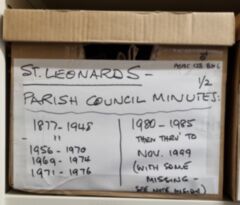 ST. LEONARDS -
1/2
PARISH COUNCIL MINUTES:
1877 - 1948
" "
1956 - 1970
1969 - 1974
1971 - 1976
1980 - 1985
THEN THRU' TO
NOV. 1999
(WITH SOME
MISSING -
SEE NOTE INSIDE)